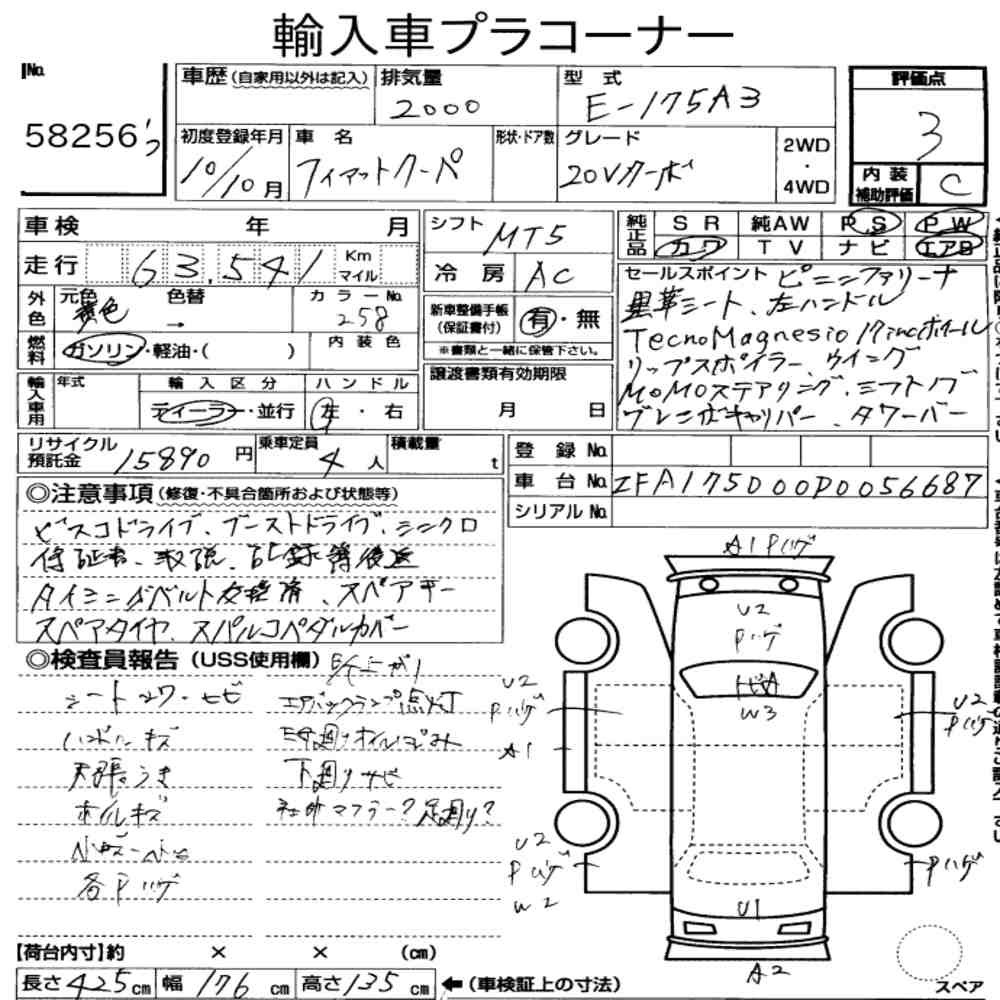 輸入車プラコーナー
No.
58256
車歴(自家用以外は記入)
排気量
2000
型 式
E-175A3
評価点
3
初度登録年月
10/10月
車 名
フィアットクーペ
形状・ドア数
グレード
20Vターボ
2WD
・
4WD
内装
補助評価
C
車検 年 月
シフト
MT5
純正品
SR 純AW P.S P.W
カワ TV ナビ エアB
走行 63,541 Km
マイル
冷房 AC
セールスポイント ピニンファリーナ
黒革シート、左ハンドル
TecnoMagnesio 17incホイール
リップスポイラー、ウイング
MOMOステアリング、シフトノブ
ブレンボキャリパー、タワーバー
外色
元色 黄色
色替 →
カラーNo.
258
新車整備手帳
(保証書付)
有・無
※書類と一緒に保管下さい。
燃料
ガソリン・軽油・( )
内装色
譲渡書類有効期限
月 日
輸入車用
年式
輸入区分
ディーラー・並行
ハンドル
左・右
リサイクル
預託金 15890円
乗車定員
4人
積載量
t
登録No.
車台No. ZFA175000P0056687
シリアルNo.
◎注意事項(修復・不具合箇所および状態等)
ビスコドライブ、ブーストドライブ、シンクロ
保証書、取説、記録簿後送
タイミングベルト交換済、スペアキー
スペアタイヤ、スパルコペダルカバー
◎検査員報告(USS使用欄)
シートスワ・ヒビ
エアバックランプ点灯
ハンドルキズ
天張うき
下廻りサビ
ホイルキズ
社外マフラー?足廻り?
各Pハゲ
A1 Pハゲ
U2
Pハゲ
トビA
W3
U2
Pハゲ
A1
U2
Pハゲ
U2
Pハゲ
W2
Pハゲ
U1
A2
スペア
【荷台内寸】約 × × (cm)
長さ425cm 幅176cm 高さ135cm ←(車検証上の寸法)